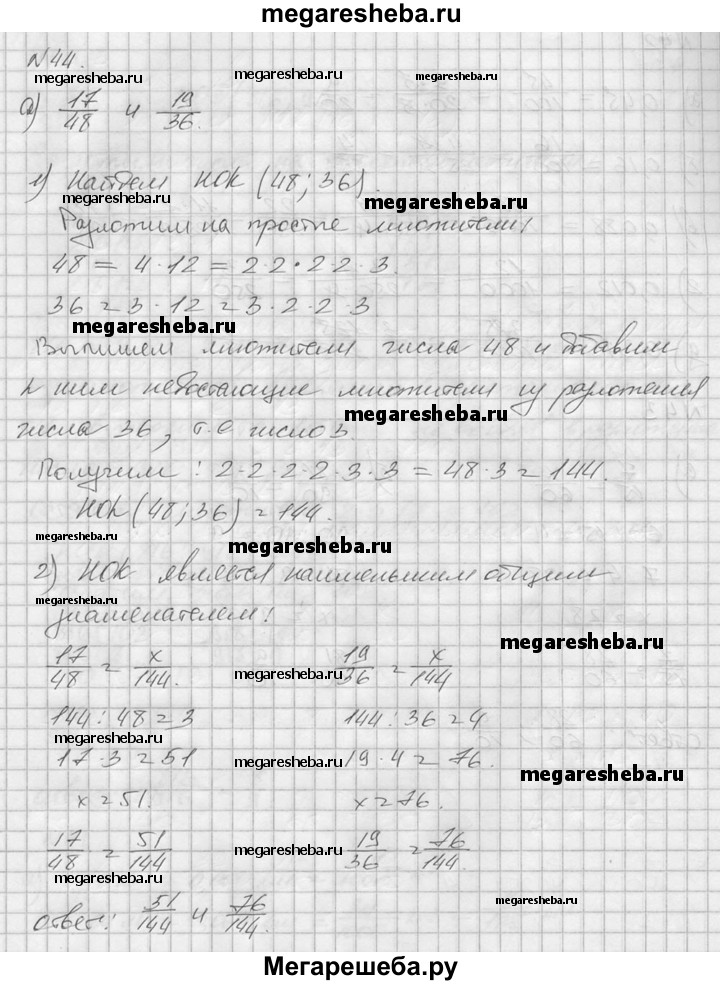 megaresheba.ru
N 44.
megaresheba.ru megaresheba.ru megaresheba.ru
а) 17/48 и 19/36.
1) Найдем НОК (48; 36).
megaresheba.ru megaresheba.ru
Разложим на простые множители:
48 = 4·12 = 2·2·2·2·3.
36 = 3·12 = 3·2·2·3
megaresheba.ru
Выпишем множители числа 48 и добавим
к ним недостающие множители из разложения
megaresheba.ru
числа 36, т.е число 3.
Получим: 2·2·2·2·3·3 = 48·3 = 144.
НОК (48; 36) = 144.
megaresheba.ru megaresheba.ru
2) НОК является наименьшим общим
megaresheba.ru
знаменателем:
megaresheba.ru
17/48 = x/144. 19/36 = x/144
megaresheba.ru megaresheba.ru
144 : 48 = 3 144 : 36 = 4
megaresheba.ru
17·3 = 51 19·4 = 76.
megaresheba.ru megaresheba.ru
x = 51. x = 76.
17/48 = 51/144 19/36 = 76/144.
megaresheba.ru
megaresheba.ru
ответ: 51/144 и 76/144.
megaresheba.ru megaresheba.ru
Мегарешеба.ру